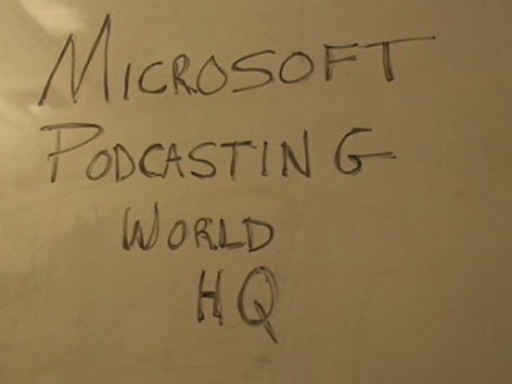 MICROSOFT
PODCASTING
WORLD
HQ